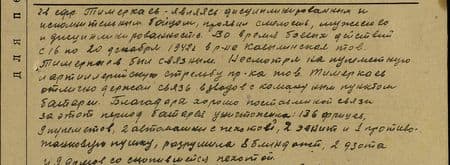 для пе
За стр Тимеркаев - являясь дисциплинированным и
исполнительным бойцом, проявил смелость, мужество
и дисциплинированность. Во время боевых действий
с 16 по 20 декабря 1942г в р-не тов.
Тимеркаев был связным. Несмотря на пулеметную
и артиллерийскую стрельбу пр-ка тов. Тимеркаев
отлично держал связь взводов с командным пунктом
батареи. Благодаря хорошо поставленной связи
за этот период батарея уничтожила: 136 фрицев,
9 пулеметов, 2 автомашины с пехотой, 2 и 1 противо-
танковую пушку, разрушила 8 блиндажей, 2 дзота
и 9 домов со скопившейся пехотой.